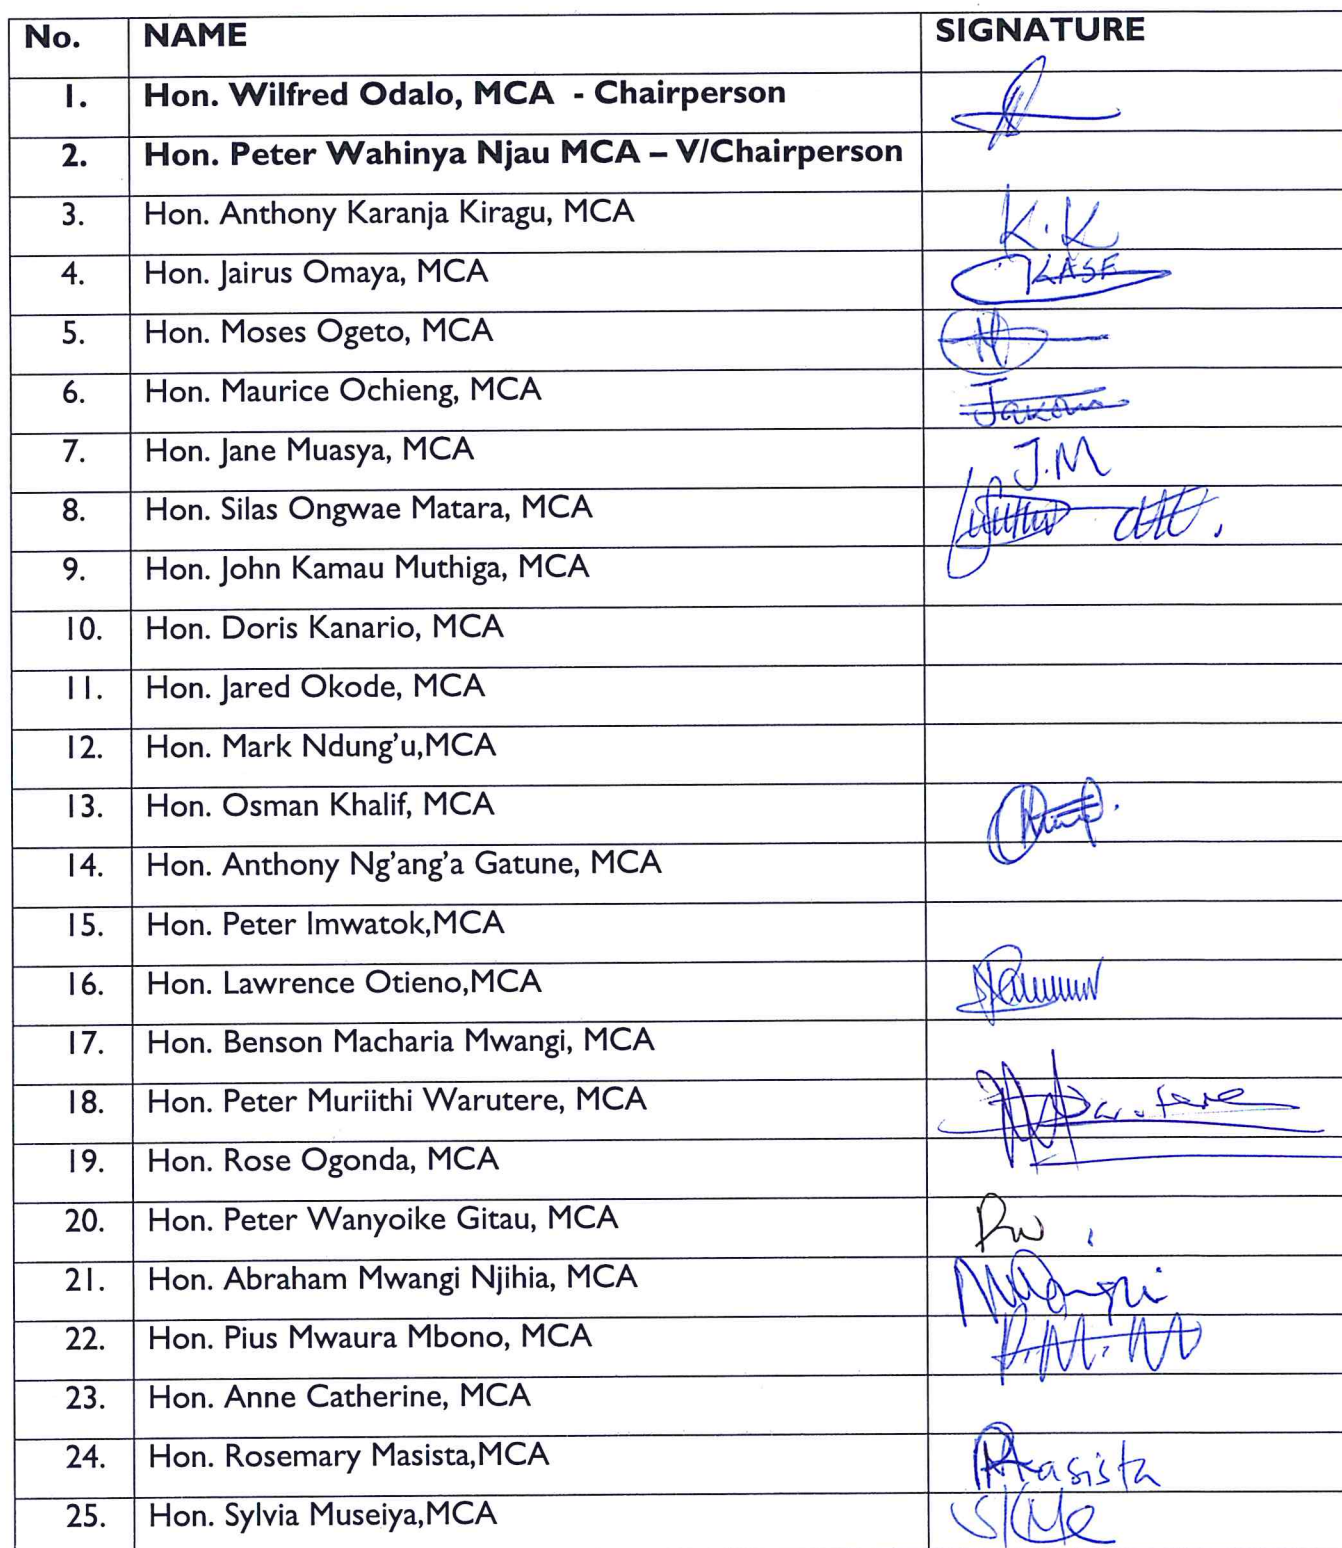 No. NAME SIGNATURE
1. Hon. Wilfred Odalo, MCA - Chairperson
2. Hon. Peter Wahinya Njau MCA – V/Chairperson
3. Hon. Anthony Karanja Kiragu, MCA K.K
4. Hon. Jairus Omaya, MCA
5. Hon. Moses Ogeto, MCA
6. Hon. Maurice Ochieng, MCA
7. Hon. Jane Muasya, MCA J.M
8. Hon. Silas Ongwae Matara, MCA
9. Hon. John Kamau Muthiga, MCA
10. Hon. Doris Kanario, MCA
11. Hon. Jared Okode, MCA
12. Hon. Mark Ndung'u,MCA
13. Hon. Osman Khalif, MCA
14. Hon. Anthony Ng'ang'a Gatune, MCA
15. Hon. Peter Imwatok,MCA
16. Hon. Lawrence Otieno,MCA
17. Hon. Benson Macharia Mwangi, MCA
18. Hon. Peter Muriithi Warutere, MCA
19. Hon. Rose Ogonda, MCA
20. Hon. Peter Wanyoike Gitau, MCA
21. Hon. Abraham Mwangi Njihia, MCA
22. Hon. Pius Mwaura Mbono, MCA
23. Hon. Anne Catherine, MCA
24. Hon. Rosemary Masista,MCA
25. Hon. Sylvia Museiya,MCA